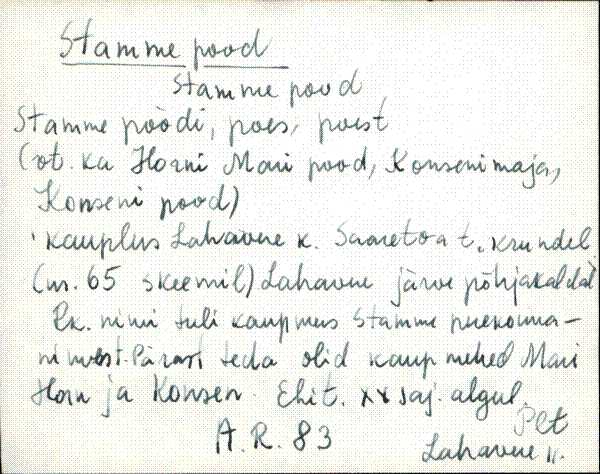 Stamme pood
Stamme pood,
Stamme pòòdi, poes, poest
(vt. ka Horni Mari pood, Konsenimaja,
Konseni pood)
kauplus Lahavere k. Saaretoa t. krundil
(nr. 65 skeemil) Lahavere järve põhjakaldal
Rk. nimi tuli kaupmees Stamme perekonna-
nimest. Pärast teda olid kaupmehed Mari
Horn ja Konsen. Ehit. XX saj. algul.
Plt
A.R. 83
Lahavere